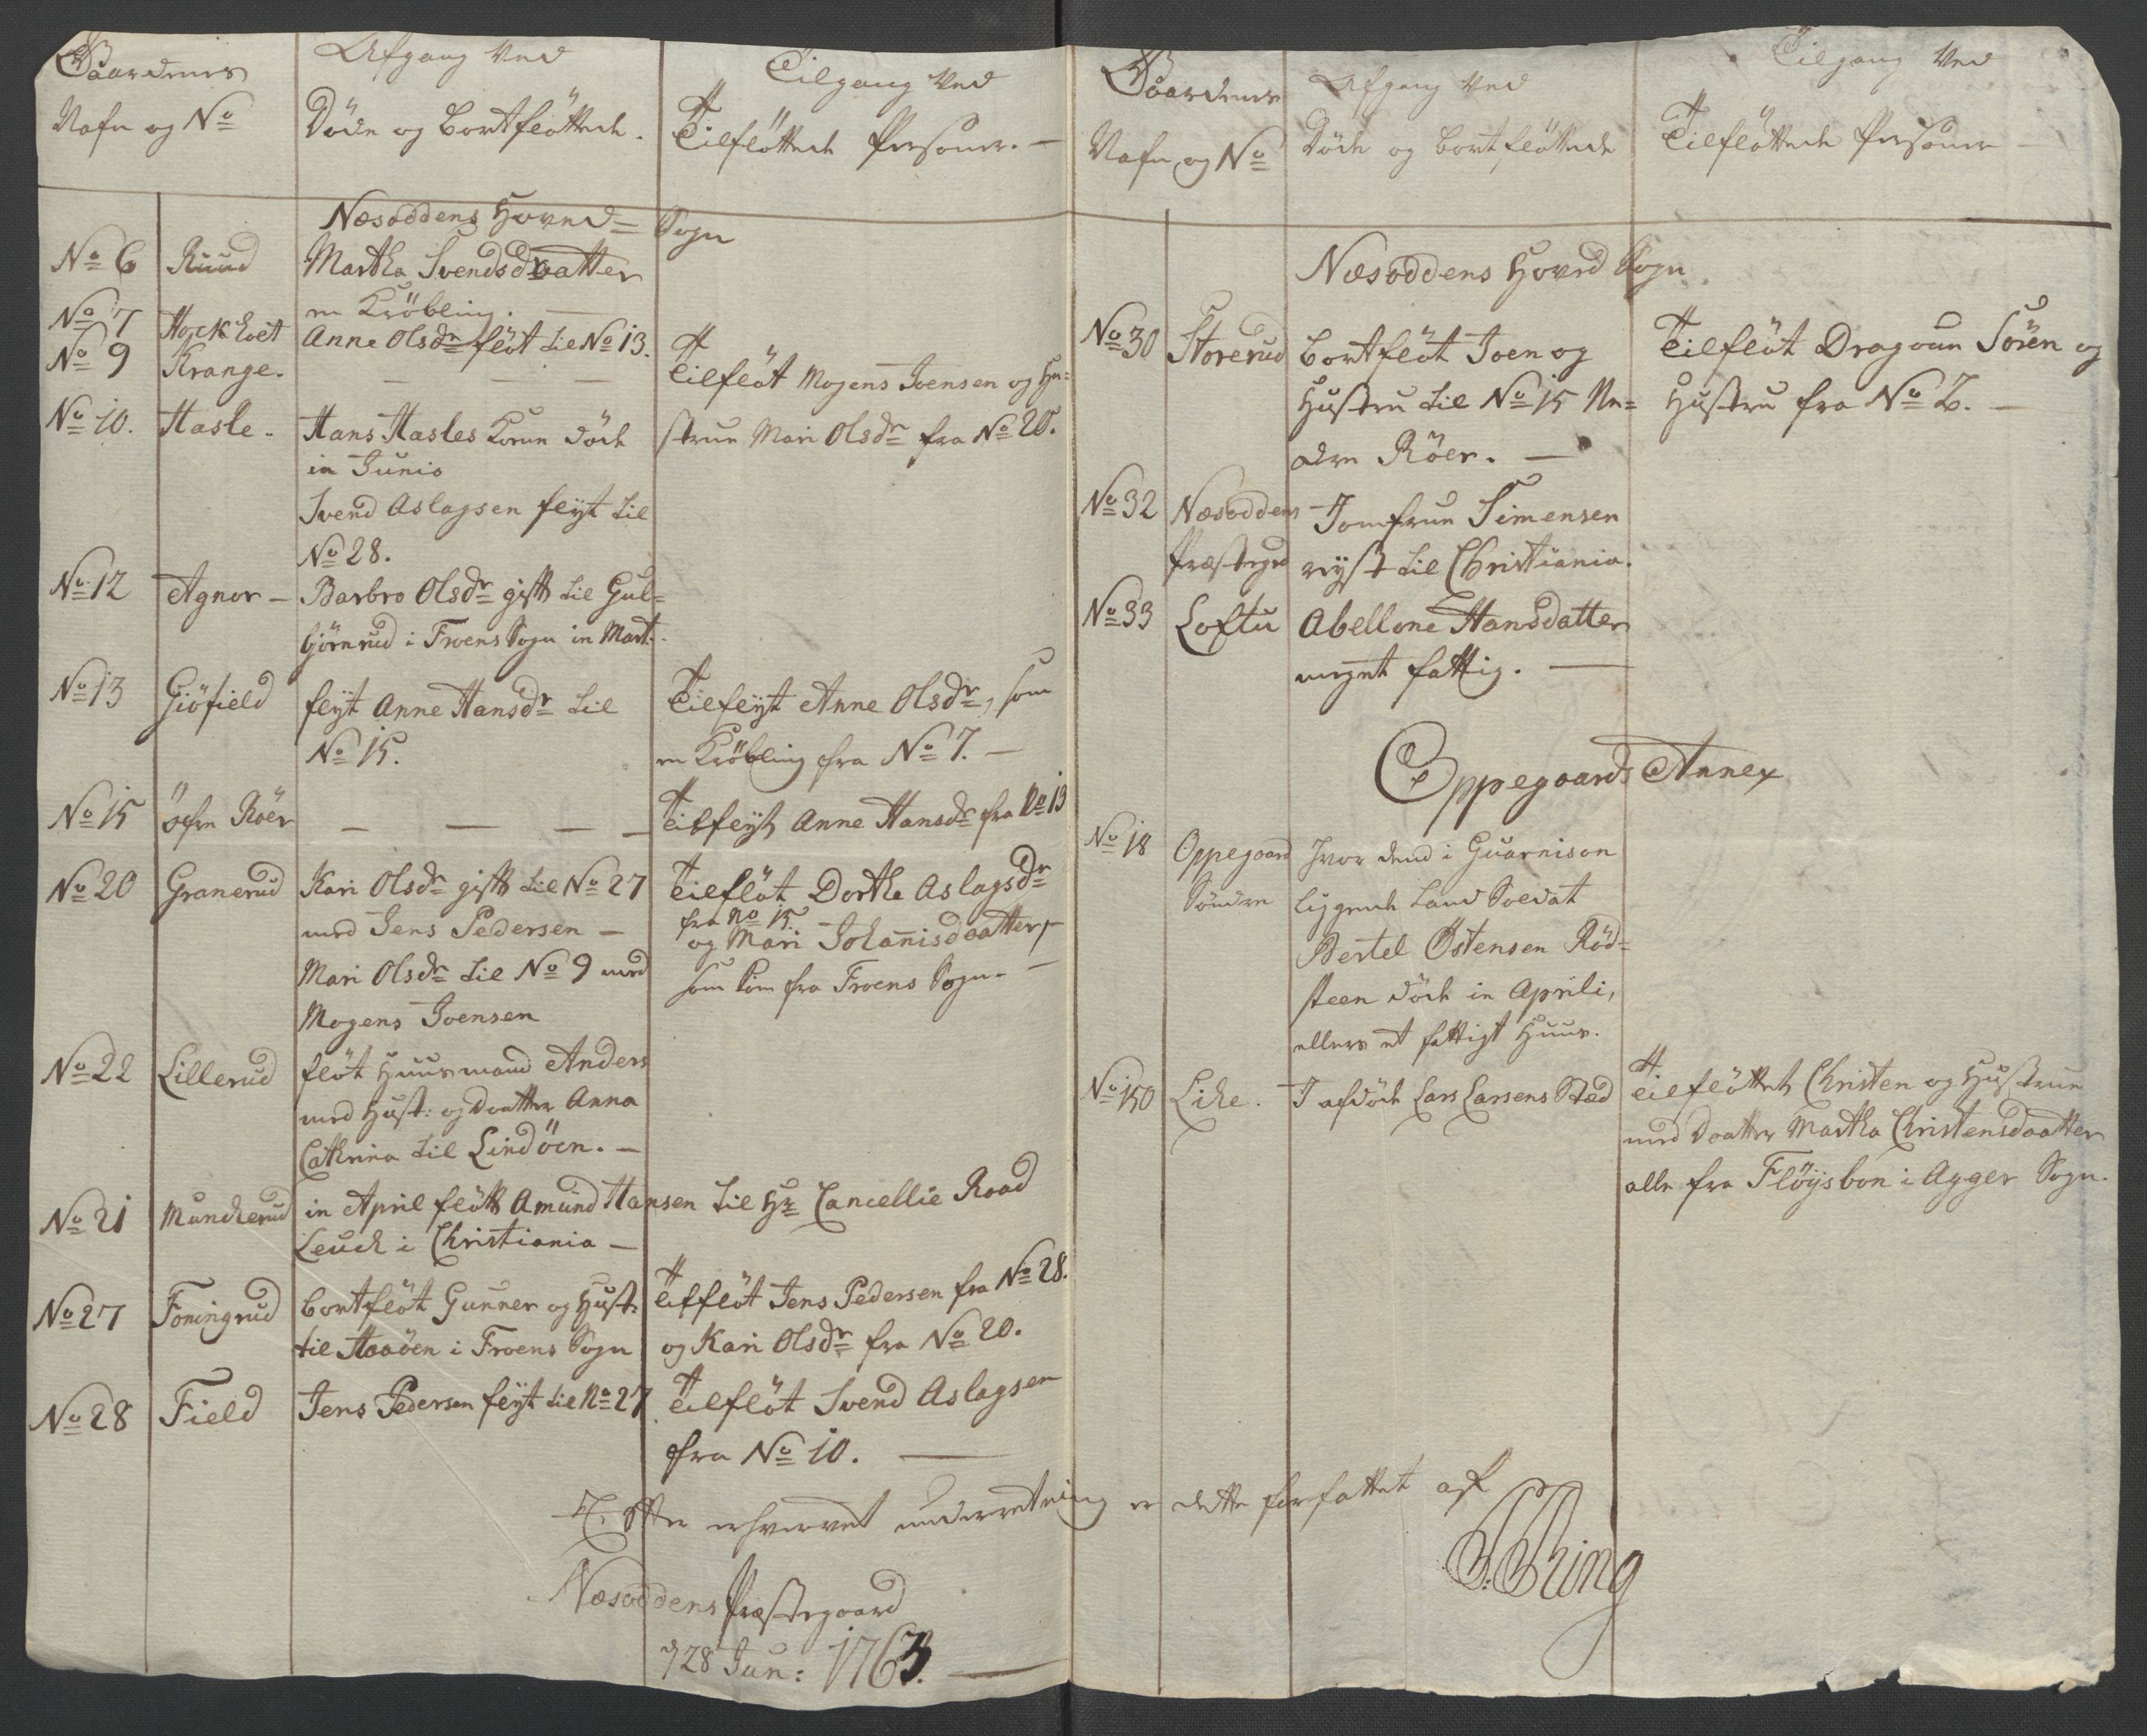 Gaardenes
Nafn og No
Afgang ved
Döde og bortflöttede.
Tilgang ved
Tilflöttede Personer. —
Næsoddens Hoved= Sogn
No 6 Ruud Martha Svendsdaatter
en Kröbling. —
No 7 Hock Eoet Anne Olsdr flöt til No 13.
No 9 Krange. — — — Tilflöt Mogens Joensen og Hu=
strue Mari Olsdr fra No 20.
No 10. Hasle. Hans Hasles Kone döde
in Junio
Svend Aslagsen fleyt til
No 28.
No 12 Agnor — Barbro Olsdr gift til Gul=
björnrud i Froens Sogn in Mart.
No 13 Giöfield fleyt Anne Hansdr til
No 15.
Tilfleyt Anne Olsdr, som
en Kröbling fra No 7. —
No 15 öfre Röer — — — — Tilfleyt Anne Hansdr fra No 13
No 20 Granerud Kari Olsdr gift til No 27
med Jens Pedersen —
Mari Olsdr til No 9 med
Mogens Joensen
Tilflöt Dorthe Aslagsdr
fra No 15.
og Mari Johannisdaatter,
som kom fra Froens Sogn. —
No 22 Lillerud flöt Huusmand Anders
med Hust: og Daatter Anna
Cathrina til Lindöen. —
No 21 Munckerud in April flött Amund Hansen til Hr Cancellie Raad
Leuch i Christiania —
No 27 Foningrud bortflöt Gunner og Hust:
til Haaöen i Froens Sogn
Tilflöt Jens Pedersen fra No 28.
og Kari Olsdr fra No 20.
No 28 Field Jens Pedersen fleyt til No 27
Tilflöt Svend Aslagsen
fra No 10. —
Gaardenes
Nafn og No
Afgang ved
Döde og bortflöttede
Tilgang ved
Tilflöttede Personer —
Næsoddens Hoved Sogn
No 30 Storerud bortflöt Joen og
Hustru til No 15 Ne=
dre Röer. —
Tilflöt Dragoun Sören og
Hustru fra No 2. —
No 32 Næsoddens
Præstegrd
Jomfrue Simensen
reyst til Christiania.
No 33 Loftu Abellone Hansdatter
meget fattig. —
Oppegaards Annex
No 18 Oppegaard
Söndre
hvor dend i Guarnison
liggende Land Soldat
Bertel Östensen Röd=
steen döde in Aprili,
ellers et fattigt Huus.
No 150 Like. I afdöde Lars Larsens Stæd
Tilflöttet Christen og Hustrue
med Daatter Martha Christensdaatter
alle fra Flöysbon i Agger Sogn.
Efter erhvervet underretning er dette forfattet af
Næsoddens Præstegaard
d 28 Jun: 1763. —